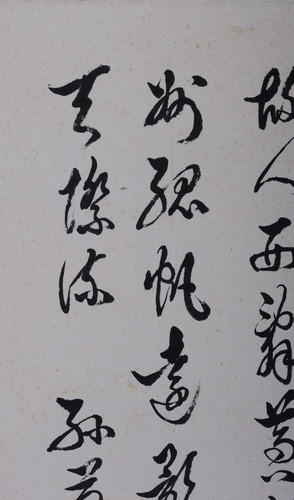 故人西辭黃
州孤帆遠影
天際流 孫